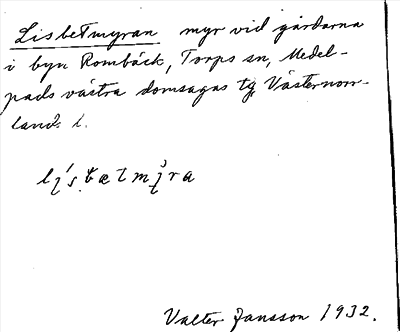 Lisbetmyran myr vid gårdarna
i byn Rombäck, Torps sn, Medel-
pads västra domsagas tg, Västernorr-
land. l.
Valter Jansson 1932.